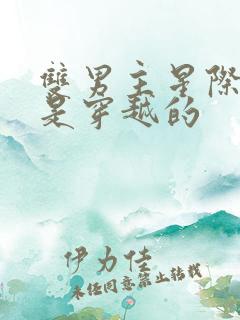 雙男主星際
是穿越的
伊力佳
未經同意禁止轉載